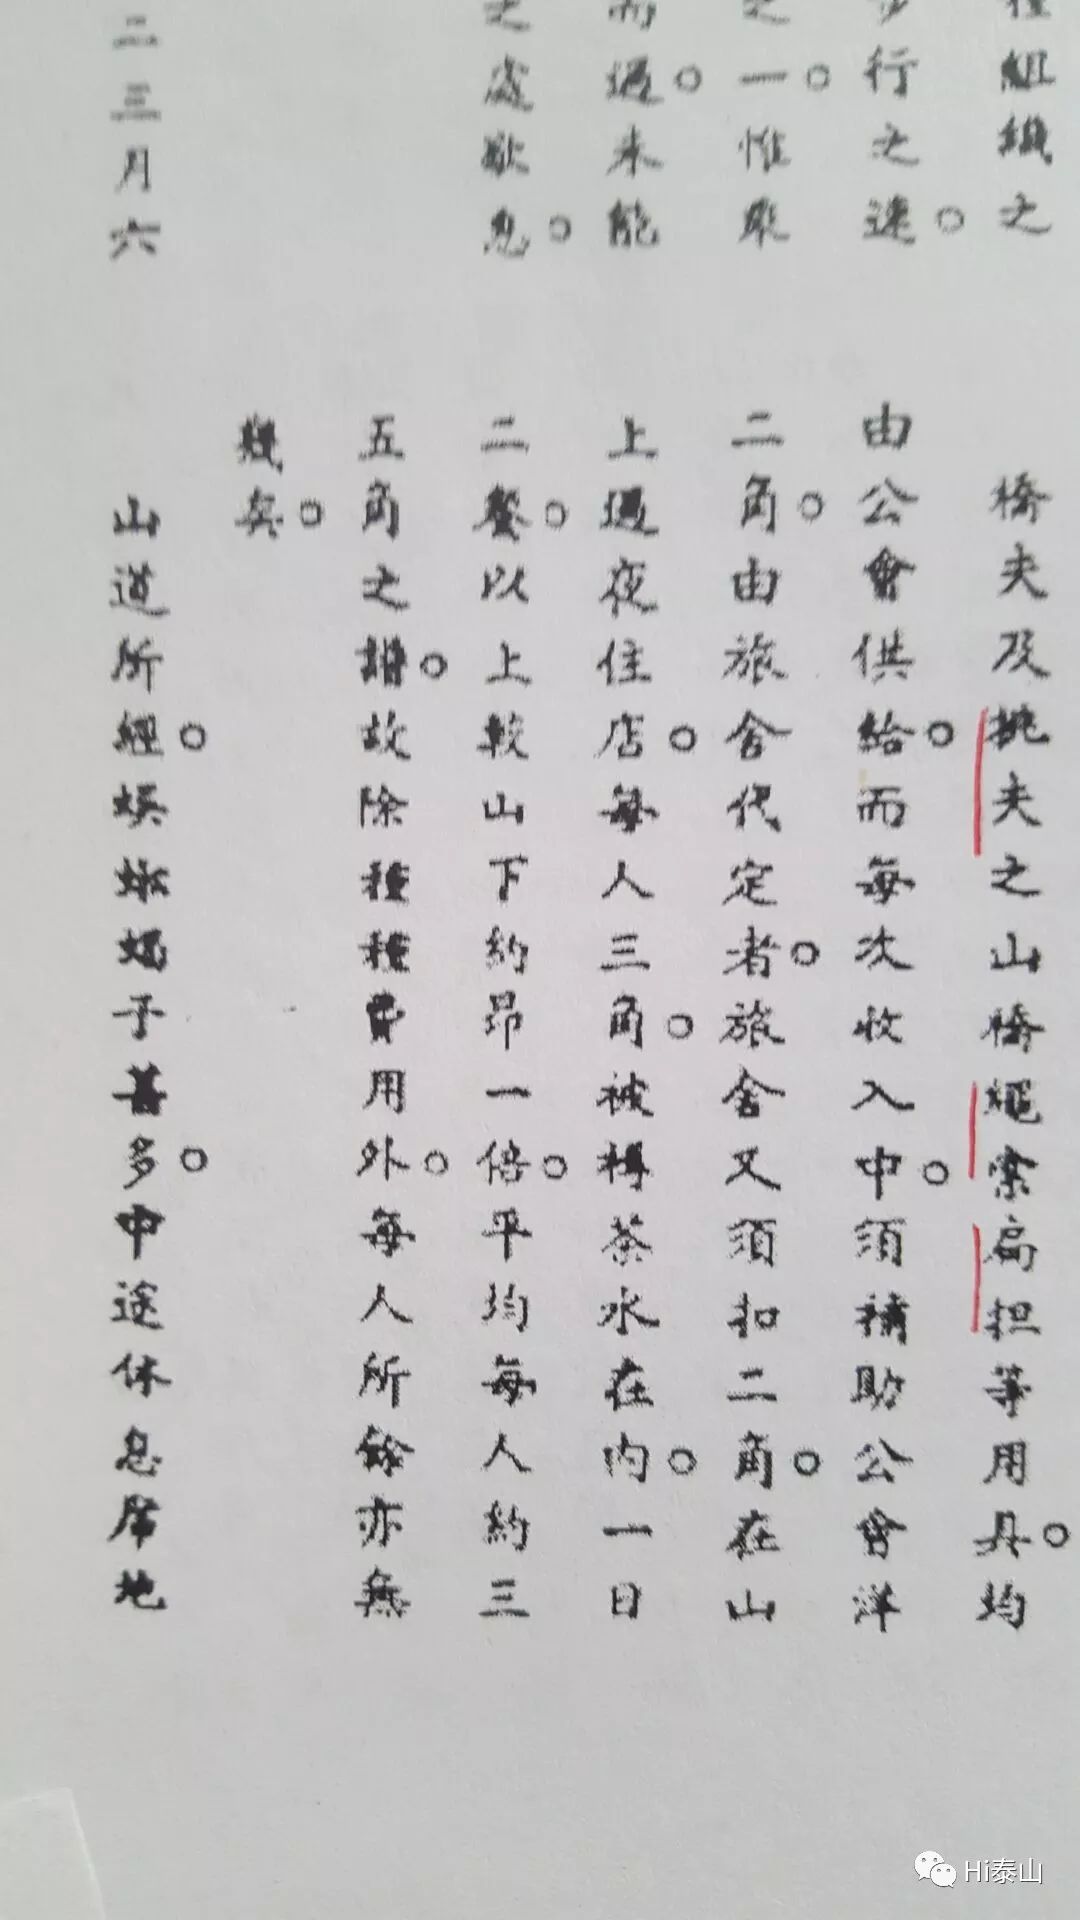 組織之
行之速。
之一。惟乘
而過。未能
之處歇息。
二三月六
橋夫及挑夫之山橋繩索扁担等用具。均
由公會供給。而每次收入中。須補助公會洋
二角。由旅舍代定者。旅舍又須扣二角。在山
上過夜住店。每人三角。被褥茶水在內。一日
二餐。以上較山下約昂一倍。平均每人約三
五角之譜。故除種種費用外。每人所餘亦無
幾矣。
山道所經。蜈蚣蝎子甚多。中途休息席地
Hi泰山